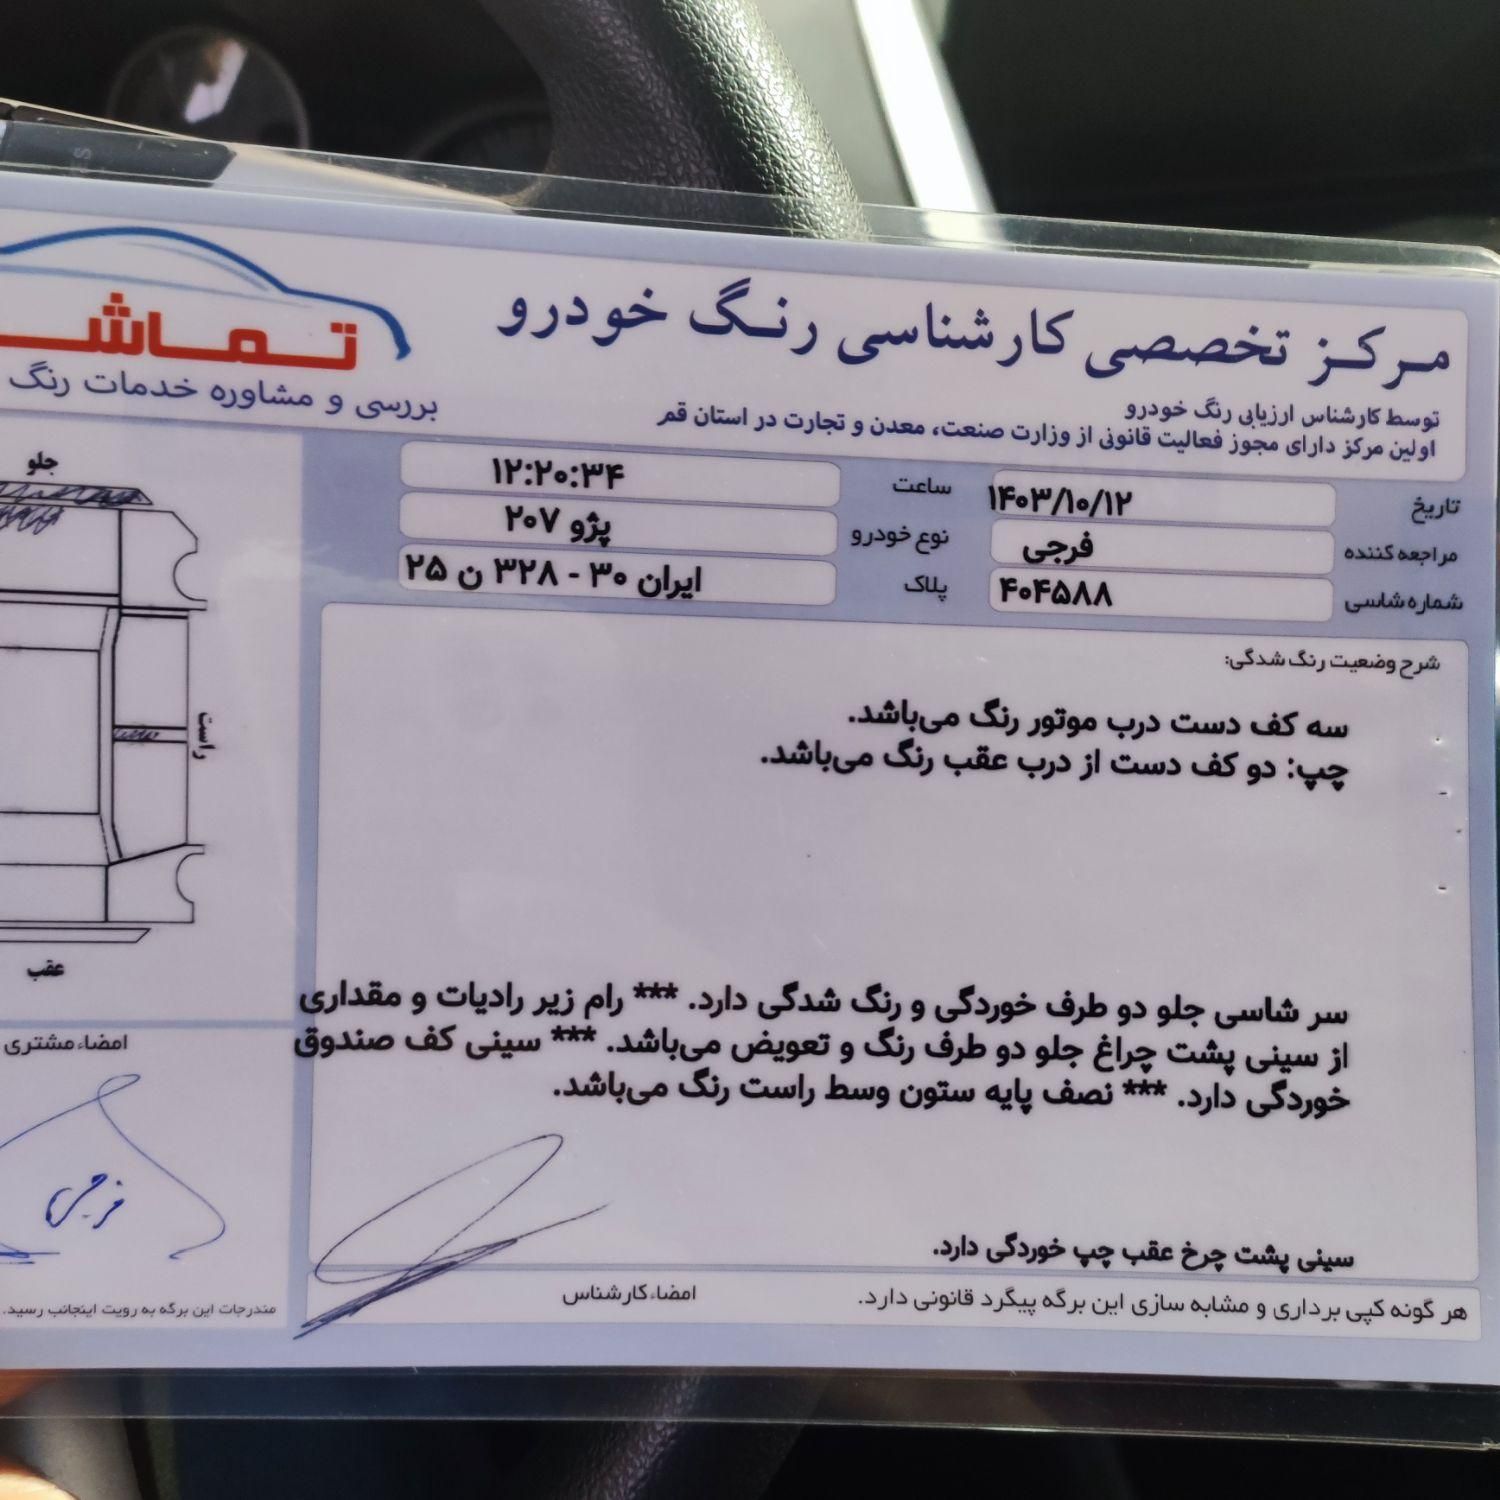 مرکز تخصصی کارشناسی رنگ خودرو
توسط کارشناس ارزیابی رنگ خودرو
اولین مرکز دارای مجوز فعالیت قانونی از وزارت صنعت، معدن و تجارت در استان قم
تماش
بررسی و مشاوره خدمات رنگ
تاریخ ۱۴۰۳/۱۰/۱۲ ساعت ۱۲:۲۰:۳۴
مراجعه کننده فرجی نوع خودرو پژو ۲۰۷
شماره شاسی ۴۰۴۵۸۸ پلاک ایران ۳۰ - ۳۲۸ ن ۲۵
شرح وضعیت رنگ شدگی:
سه کف دست درب موتور رنگ می‌باشد.
چپ: دو کف دست از درب عقب رنگ می‌باشد.
سر شاسی جلو دو طرف خوردگی و رنگ شدگی دارد. *** رام زیر رادیات و مقداری
از سینی پشت چراغ جلو دو طرف رنگ و تعویض می‌باشد. *** سینی کف صندوق
خوردگی دارد. *** نصف پایه ستون وسط راست رنگ می‌باشد.
سینی پشت چرخ عقب چپ خوردگی دارد.
هر گونه کپی برداری و مشابه سازی این برگه پیگرد قانونی دارد.
امضاء کارشناس
جلو
راست
عقب
امضاء مشتری
فرجی
مندرجات این برگه به رویت اینجانب رسید.